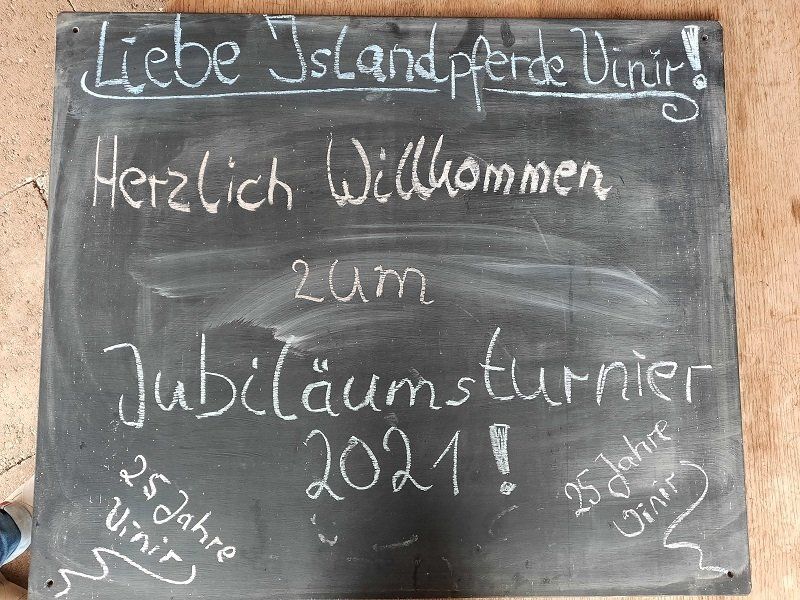 Liebe Islandpferde Vinir!
Herzlich Willkommen
zum
Jubiläumsturnier
2021!
25 Jahre
Vinir
25 Jahre
Vinir